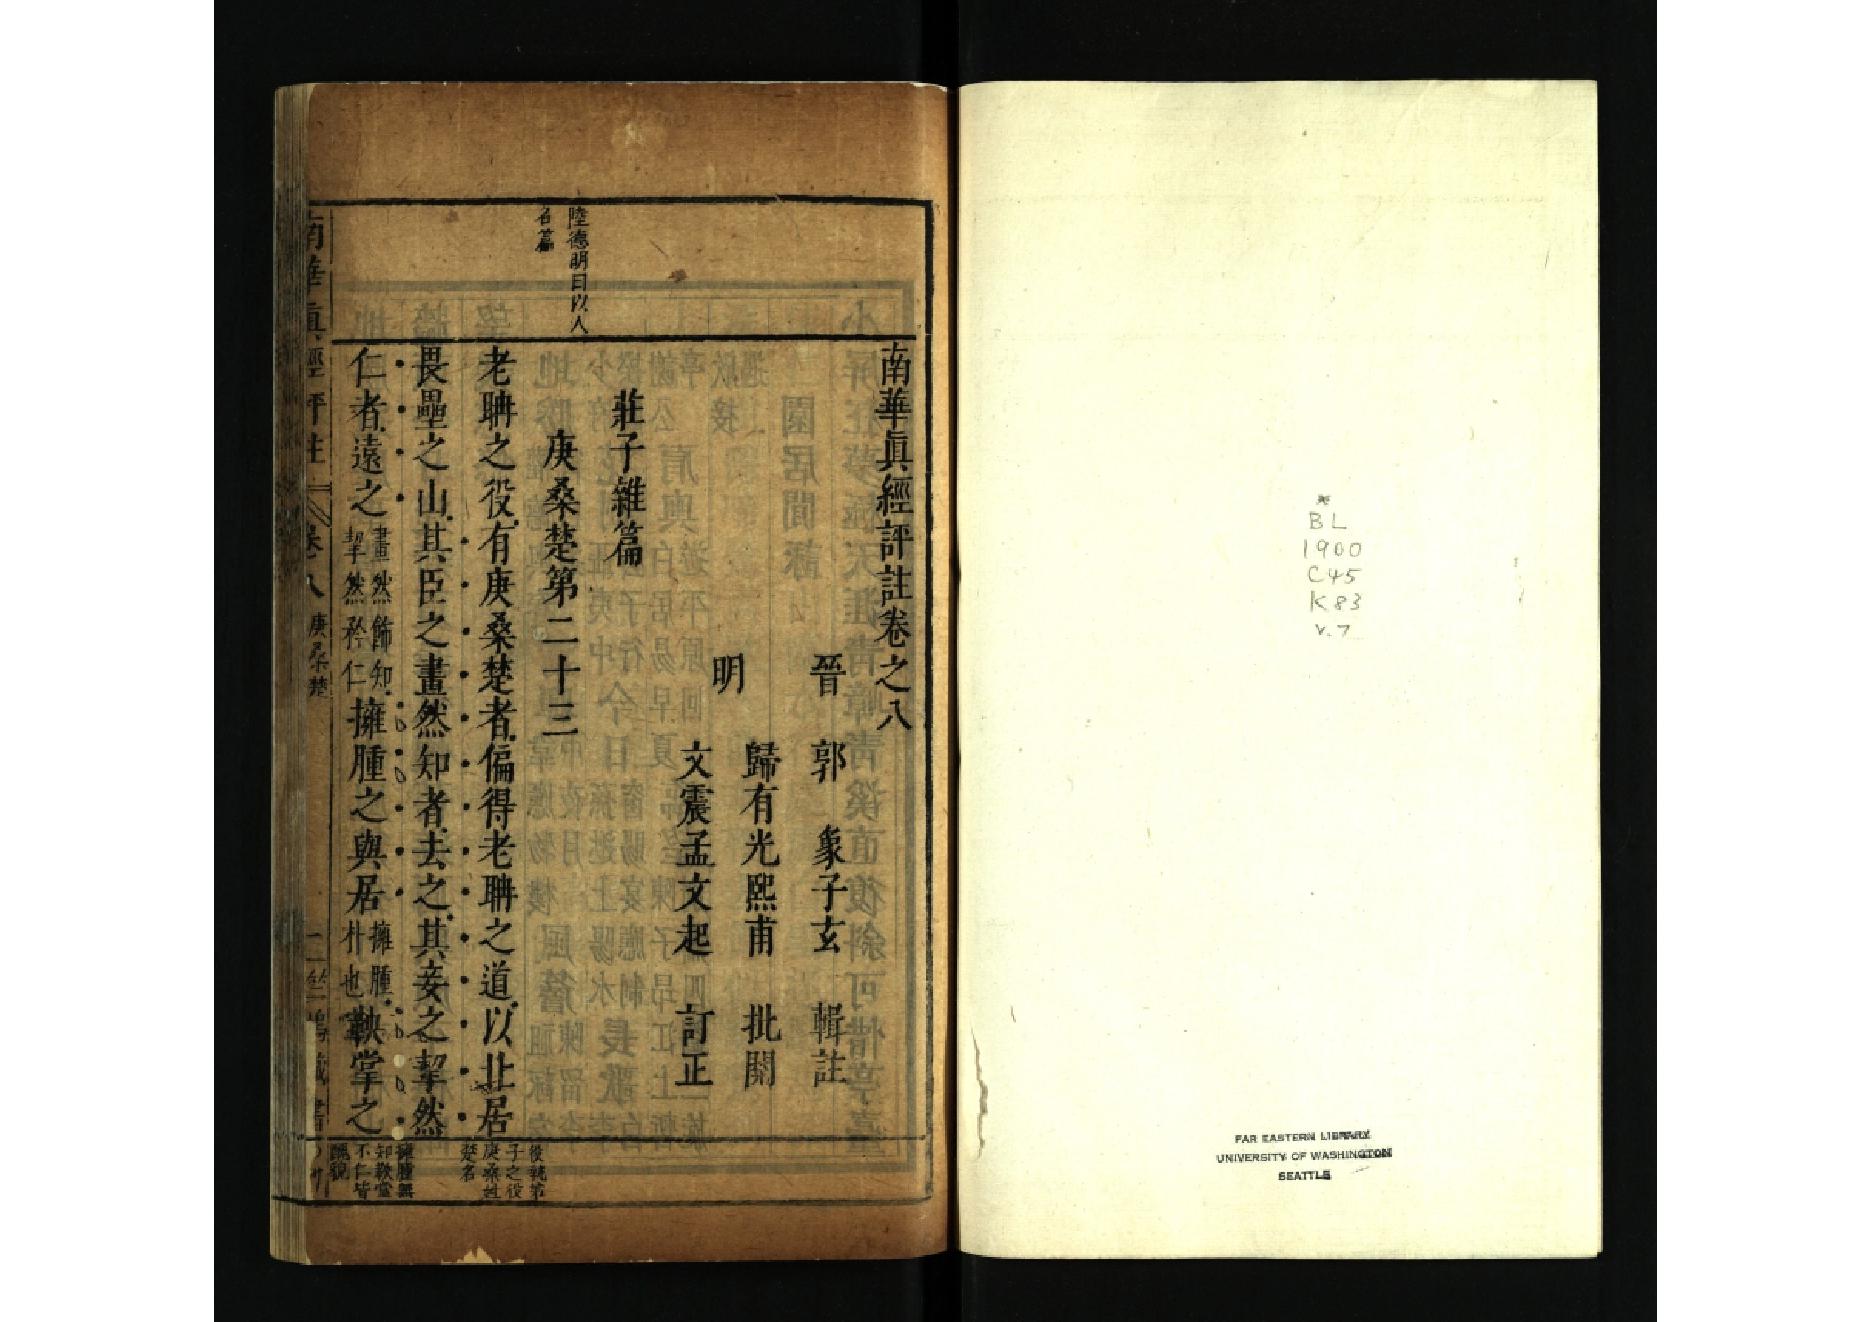 BL
1900
C45
K83
v.7
FAR EASTERN LIBRARY
UNIVERSITY OF WASHINGTON
SEATTLE
陸德明曰以人
名篇
南華眞經評註卷之八
晉 郭 象子玄 輯註
明 歸有光熙甫 批閱
文震孟文起 訂正
莊子雜篇
庚桑楚第二十三
老聃之役有庚桑楚者偏得老聃之道以北居
畏壘之山其臣之畫然知者去之其妾之挈然
仁者遠之畫然飾知挈然矜仁擁腫之與居擁腫朴也鞅掌之
役執弟
子之役
庚桑姓
楚名
擁腫無
知鞅掌
不仁皆
醜貌
南華眞經評註 卷八 庚桑楚